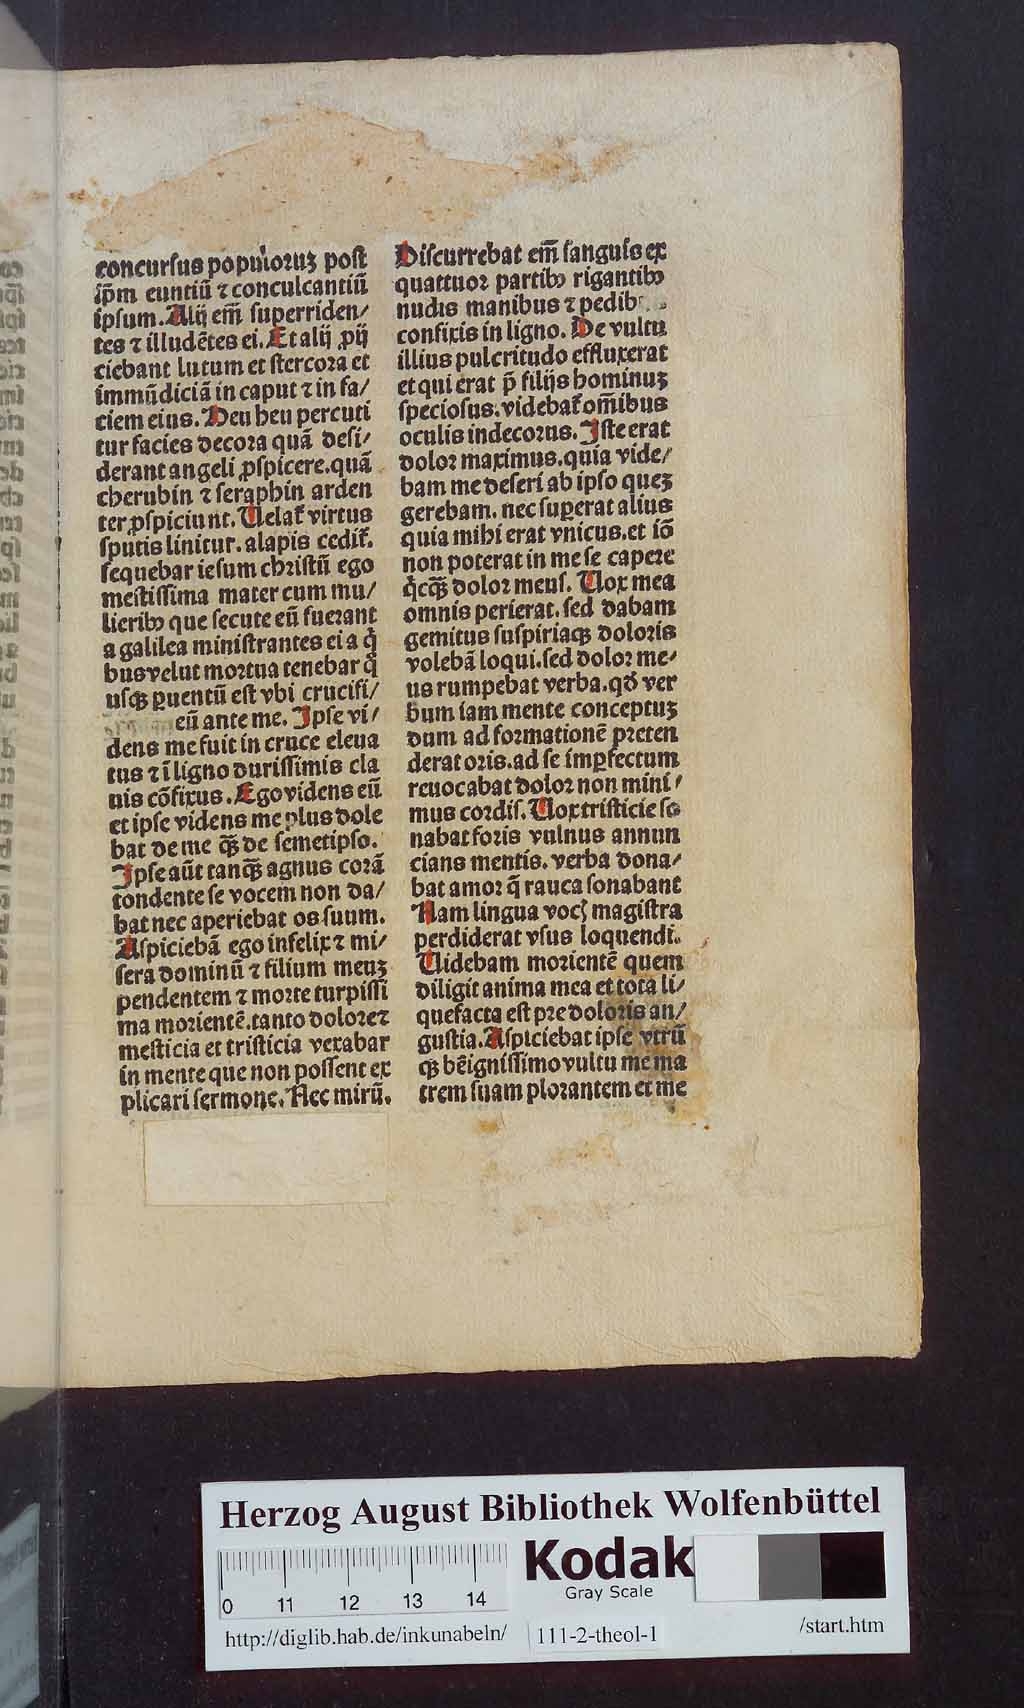 concursus populoruʒ post
ip̄m euntiū ⁊ conculcantiū
ipsum. Alij em̄ superriden/
tes ⁊ illudētes ei. Et alij ꝓij
ciebant lutum et stercora et
immūdiciā in caput ⁊ in fa/
ciem eius. Heu heu percuti
tur facies decora quā desi/
derant angeli ꝓspicere. quā
cherubin ⁊ seraphin arden
ter ꝓspiciunt. Uelat᷑ virtus
sputis linitur. alapis cedit᷑.
sequebar iesum christū ego
mestissima mater cum mu/
lieribꝰ que secute eū fuerant
a galilea ministrantes ei a q̇
bus velut mortua tenebar q̇
usqꝫ ꝑuentū est vbi crucifi/
eū ante me. Ipse vi/
dens me fuit in cruce eleua
tus ⁊ ī ligno durissimis cla
uis cōfixus. Ego videns eū
et ipse videns me plus dole
bat de me qꝫ̄ de semetipso.
Ipse aūt tanqꝫ̄ agnus corā
tondente se vocem non da/
bat nec aperiebat os suum.
Aspiciebā ego infelix ⁊ mi/
sera dominū ⁊ filium meuʒ
pendentem ⁊ morte turpissi
ma morientē. tanto dolore ⁊
mesticia et tristicia vexabar
in mente que non possent ex
plicari sermone. Nec mirū.
Discurrebat em̄ sanguis ex
quattuor partibꝰ rigantibꝰ
nudis manibus ⁊ pedib
confixis in ligno. De vultu
illius pulcritudo effluxerat
et qui erat p̄ filijs hominuʒ
speciosus. videbat᷑ om̄ibus
oculis indecorus. Iste erat
dolor maximus. quia vide/
bam me deseri ab ipso queʒ
gerebam. nec suꝑerat alius
quia mihi erat vnicus. et iō
non poterat in me se capere
q̇cqꝫ̄ dolor meus. Uox mea
omnis perierat. sed dabam
gemitus suspiriaqꝫ doloris
volebā loqui. sed dolor me/
us rumpebat verba. qd̓ ver
bum iam mente conceptuʒ
dum ad formationē preten
derat oris. ad se imꝑfectum
reuocabat dolor non mini/
mus cordis. Uox tristicie so
nabat foris vulnus annun
cians mentis. verba dona/
bat amor q̄ rauca sonabant
Nam lingua vocꝭ magistra
perdiderat vsus loquendi.
Uidebam morientē quem
diligit anima mea et tota li/
quefacta est pre doloris an/
gustia. Aspiciebat ipse vtrū
qꝫ bēignissimo vultu me ma
trem suam plorantem et me
Herzog August Bibliothek Wolfenbüttel
Kodak
Gray Scale
0 11 12 13 14
http://diglib.hab.de/inkunabeln/ 111-2-theol-1 /start.htm